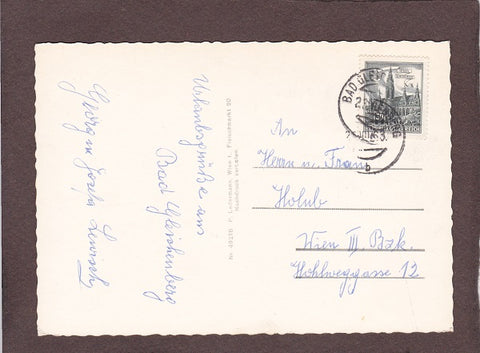 Urlaubsgrüße aus
Bad Gleichenberg
Georg u. Josefa
Nr. 49216 P. Ledermann, Wien I, Fleischmarkt 20
Nachdruck verboten
BAD GLEI
An
Herrn u. Frau
Holub
Wien III. Bzk.
Hohlweggasse 12